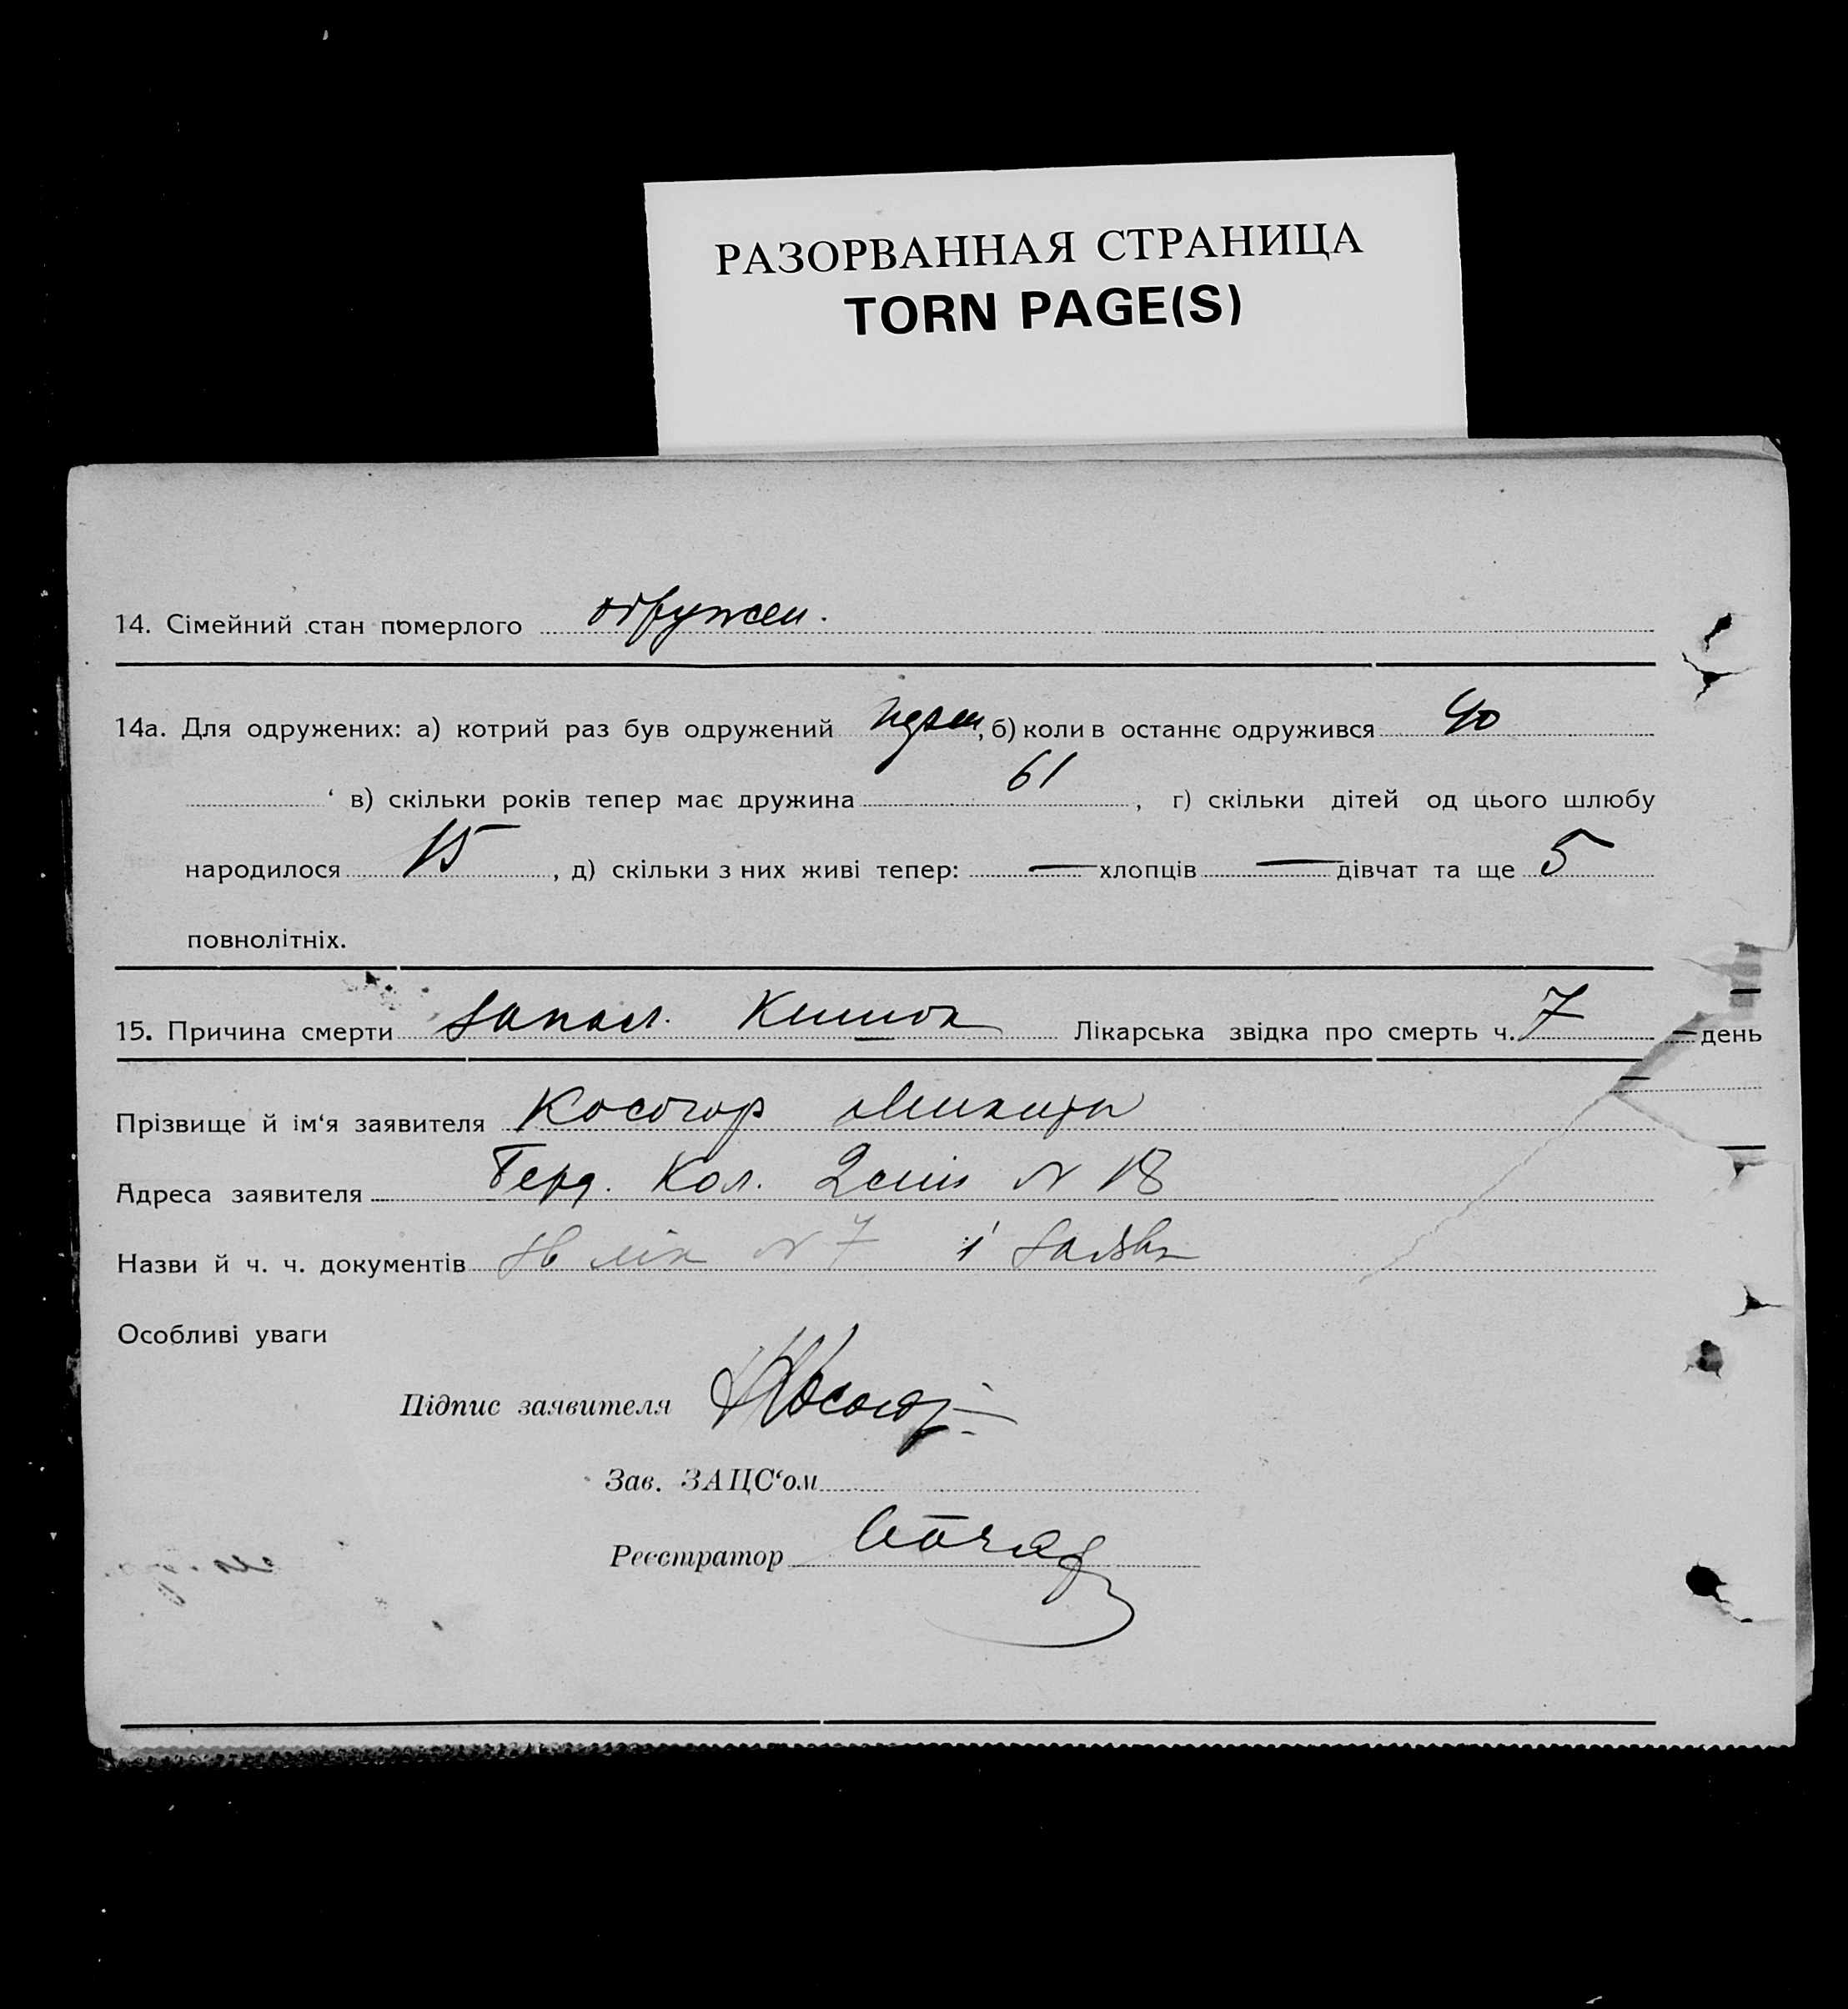 РАЗОРВАННАЯ СТРАНИЦА
TORN PAGE(S)
14. Сімейний стан померлого одружен.
14а. Для одружених: а) котрий раз був одружений, б) коли в останнє одружився 40
в) скільки років тепер має дружина 61, г) скільки дітей од цього шлюбу
народилося 15, д) скільки з них живі тепер: — хлопців — дівчат та ще 5
повнолітніх.
15. Причина смерти запал. Кишок Лікарська звідка про смерть ч. 7 день
Прізвище й ім‘я заявителя Косогор Микита
Адреса заявителя Кол. N 18
Назви й ч. ч. документів N 7 і заява
Особливі уваги
Підпис заявителя Косогор
Зав. ЗАЦС‘ом
Реєстратор